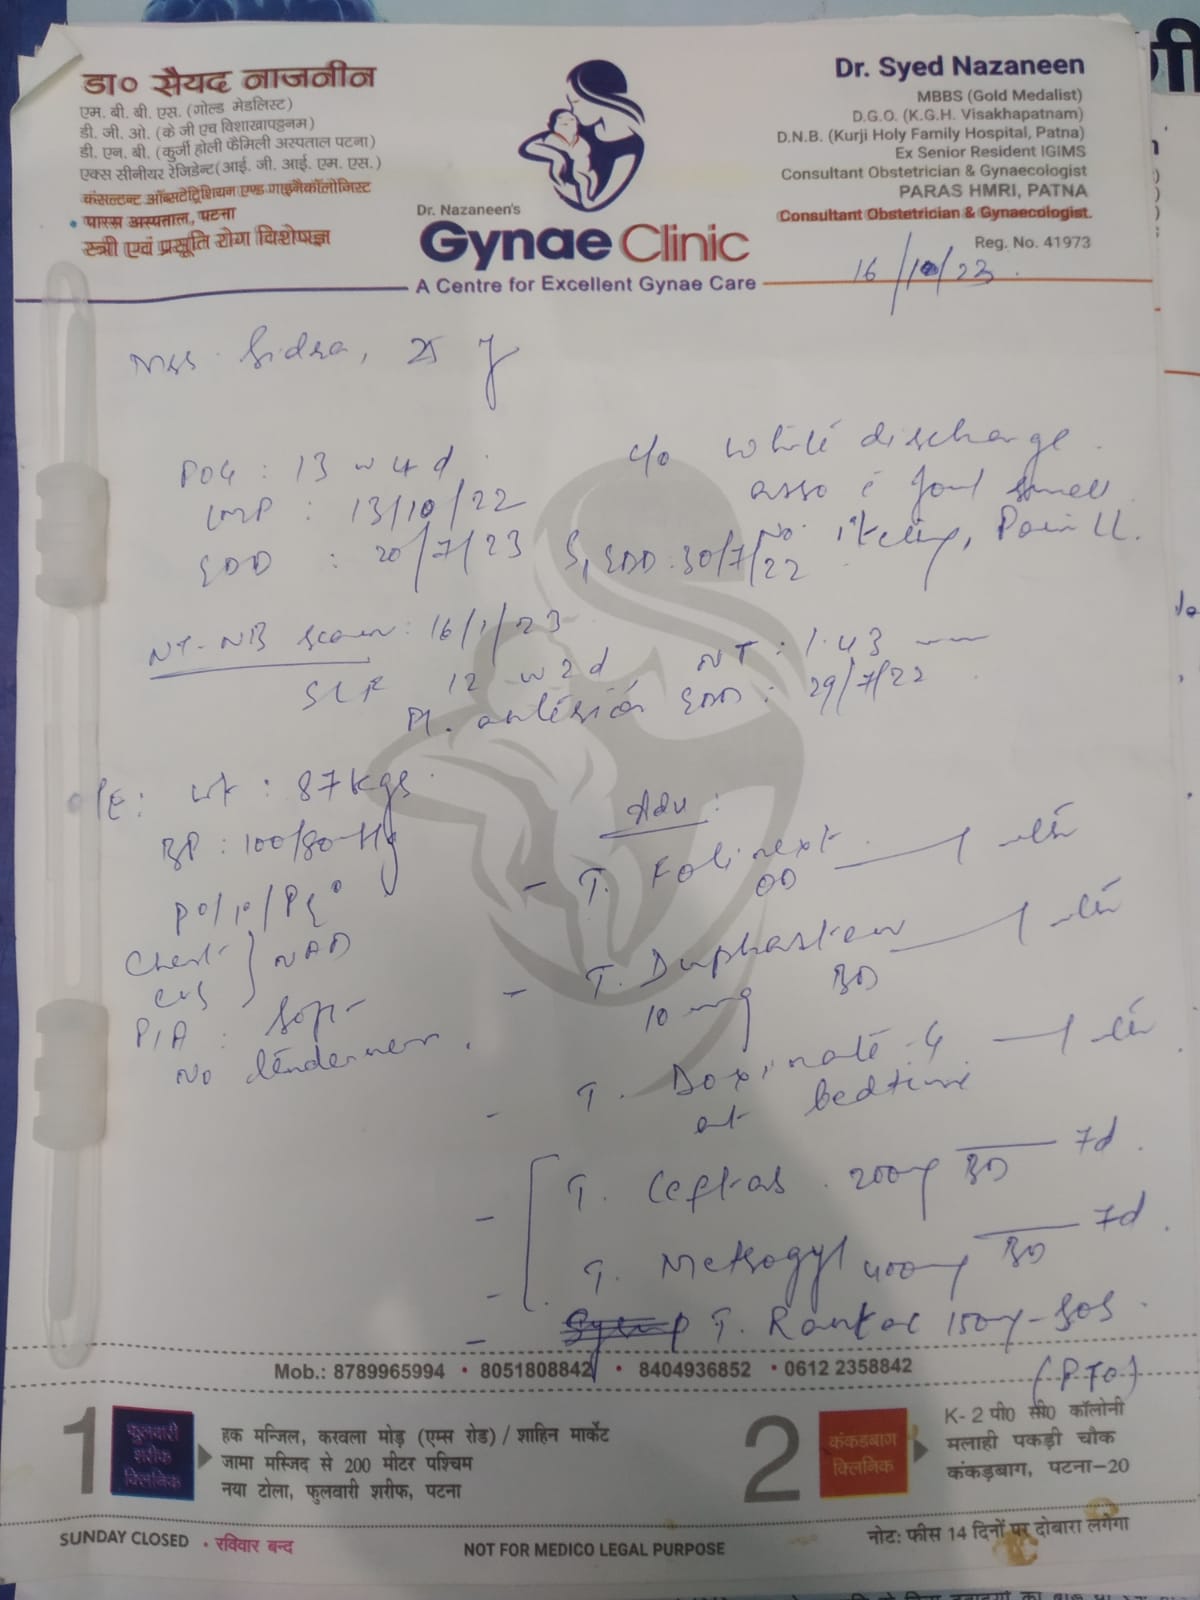 डा० सैयद नाजनीन
एम. बी. बी. एस. (गोल्ड मेडलिस्ट)
डी. जी. ओ. (के जी एच विशाखापट्टनम)
डी. एन. बी. (कुर्जी होली फैमिली अस्पताल पटना)
एक्स सीनीयर रेजिडेन्ट(आई. जी. आई. एम. एस.)
कंसल्टन्ट ऑब्सटेट्रिशियन एण्ड गाइनैकॉलोजिस्ट
• पारस अस्पताल, पटना
स्त्री एवं प्रसूति रोग विशेषज्ञ
Dr. Nazaneen's
Gynae Clinic
A Centre for Excellent Gynae Care
Dr. Syed Nazaneen
MBBS (Gold Medalist)
D.G.O. (K.G.H. Visakhapatnam)
D.N.B. (Kurji Holy Family Hospital, Patna)
Ex Senior Resident IGIMS
Consultant Obstetrician & Gynaecologist
PARAS HMRI, PATNA
Consultant Obstetrician & Gynaecologist.
Reg. No. 41973
16/10/23
Mrs. Sidra, 25 y
POG : 13 w 4 d
LMP : 13/10/22
EDD : 20/7/23 S, EDD: 30/7/22
c/o white discharge
asso c foul smell
No itching, Pain
NT-NB scan: 16/1/23
SLF 12 w 2 d, NT : 1.43 mm
Pl. anterior EDD : 29/7/22
O/E: Wt : 87 kgs
BP : 100/80 Hg
Chest } NAD
CVS
P/A : Soft
No tenderness.
Adv :
- T. Folinext
OD
- T. Duphaston
10 mg BD
- T. Doxinate
at bedtime
- T. Ceftas 200mg BD 7d.
- T. Metrogyl 400mg BD 7d.
- T. Rantac 150mg SOS
(PTO)
Mob.: 8789965994 • 8051808842 • 8404936852 • 0612 2358842
1
फुलवारी
शरीफ
क्लिनिक
हक मन्जिल, करवला मोड़ (एम्स रोड) / शाहिन मार्केट
जामा मस्जिद से 200 मीटर पश्चिम
नया टोला, फुलवारी शरीफ, पटना
2
कंकड़बाग
क्लिनिक
K- 2 पी० सी० कॉलोनी
मलाही पकड़ी चौक
कंकड़बाग, पटना-20
SUNDAY CLOSED • रविवार बन्द
NOT FOR MEDICO LEGAL PURPOSE
नोट: फीस 14 दिनों पर दोबारा लगेगा